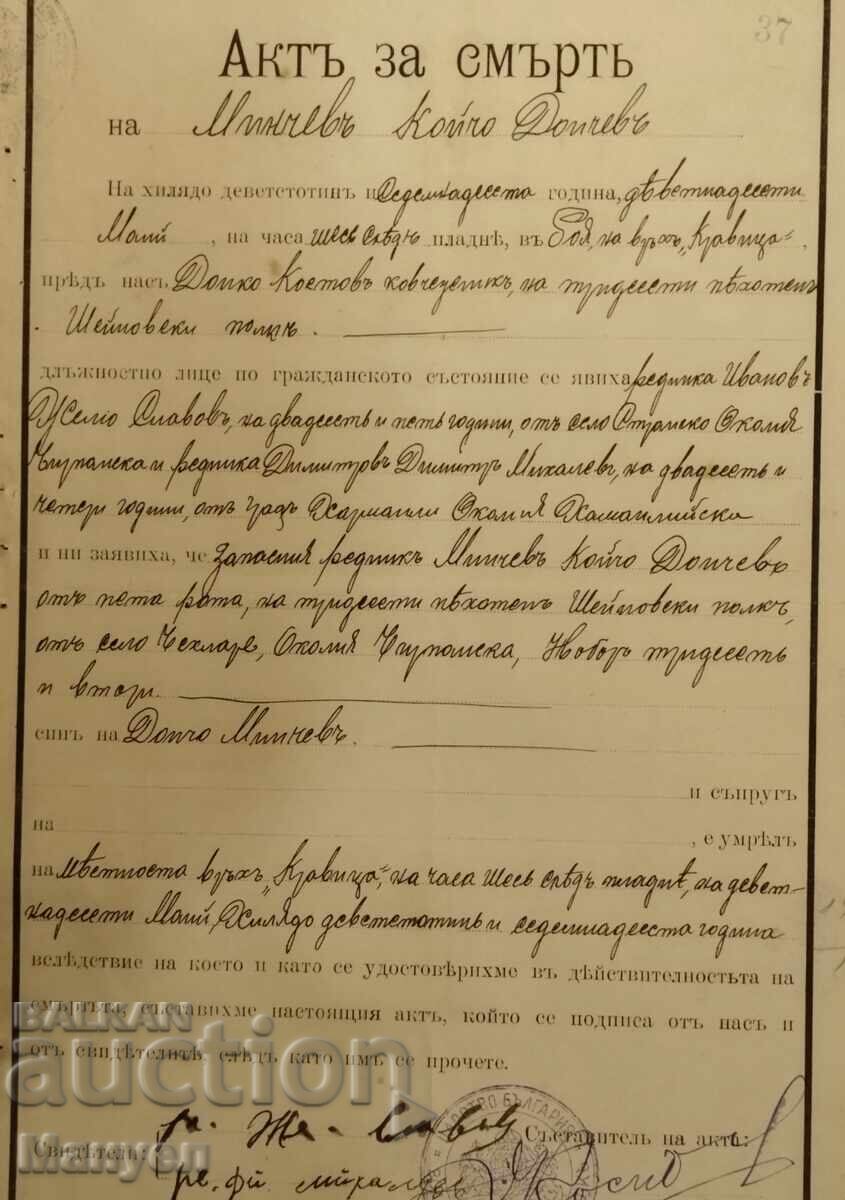 37
Актъ за смърть
на Минчевъ Койчо Дончевъ
На хилядо деветстотинъ и седемнадесета година, деветнадесети
Маий, на часа шесь следъ пладнѣ, въ боя, на врхъ „Кравица“,
прѣдъ насъ Донко Костовъ ковчежникъ, на тридесети пѣхотенъ
Шейновски полкъ.
длъжностно лице по гражданското състояние се явиха редника Ивановъ
Желю Славовъ, на двадесеть и петь години, отъ село Странско Околия
Чирпанска и редника Димитровъ Димитръ Михалевъ, на двадесеть и
четери години, отъ градъ Харманли Околия Хаманлийска
и ни заявиха, че запасния редникъ Минчевъ Койчо Дончевъ
отъ пета рота, на тридесети пѣхотенъ Шейновски полкъ,
отъ село Чехларе, Околия Чирпанска, Наборъ тридесеть
и втори.
синъ на Дончо Минчевъ.
и съпругъ
на , е умрѣлъ
на мѣстноста врьхъ „Кравица“, на часа шесь слѣдъ пладнѣ, на девет-
надесети Маий, Хилядо деветстотинь и седемнадесета година
вслѣдствие на което и като се удостовѣрихме въ дѣйствителностьта на
смъртьта, съставихме настоящия актъ, който се подписа отъ насъ и
отъ свидѣтелитѣ, слѣдъ като имъ се прочете.
BALKAN auction
Свидѣтели: р. Же. Славовъ Съставитель на акта:
ре. Ди михалевъ
Manyen